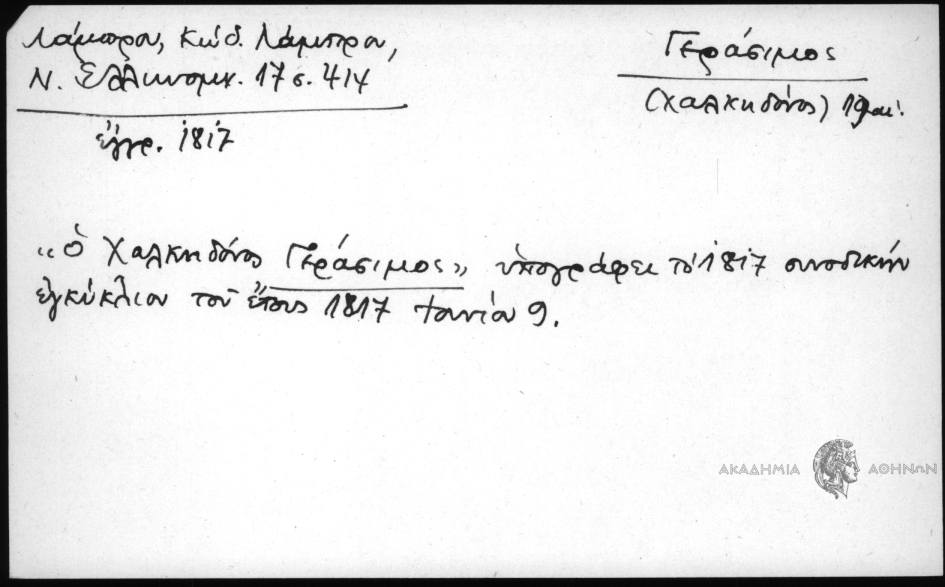 Λάμπρου, Κώδ. Λάμπρου,
Ν. Ἑλληνομν. 17 σ. 414
ἔγγρ. 1817
Γεράσιμος
(Χαλκηδόνος) 19ος αἰ.
«ὁ Χαλκηδόνος Γεράσιμος» ὑπογράφει τὸ 1817 συνοδικήν
ἐγκύκλιον τοῦ ἔτους 1817 Ἰουνίου 9.
ΑΚΑΔΗΜΙΑ ΑΘΗΝΩΝ